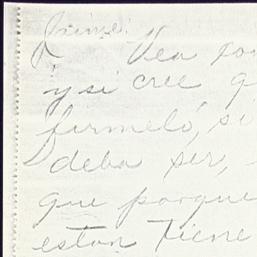 Prime:
Vea
y si cree q
fírmeló, si
deba ser,
que porque
estan tiene